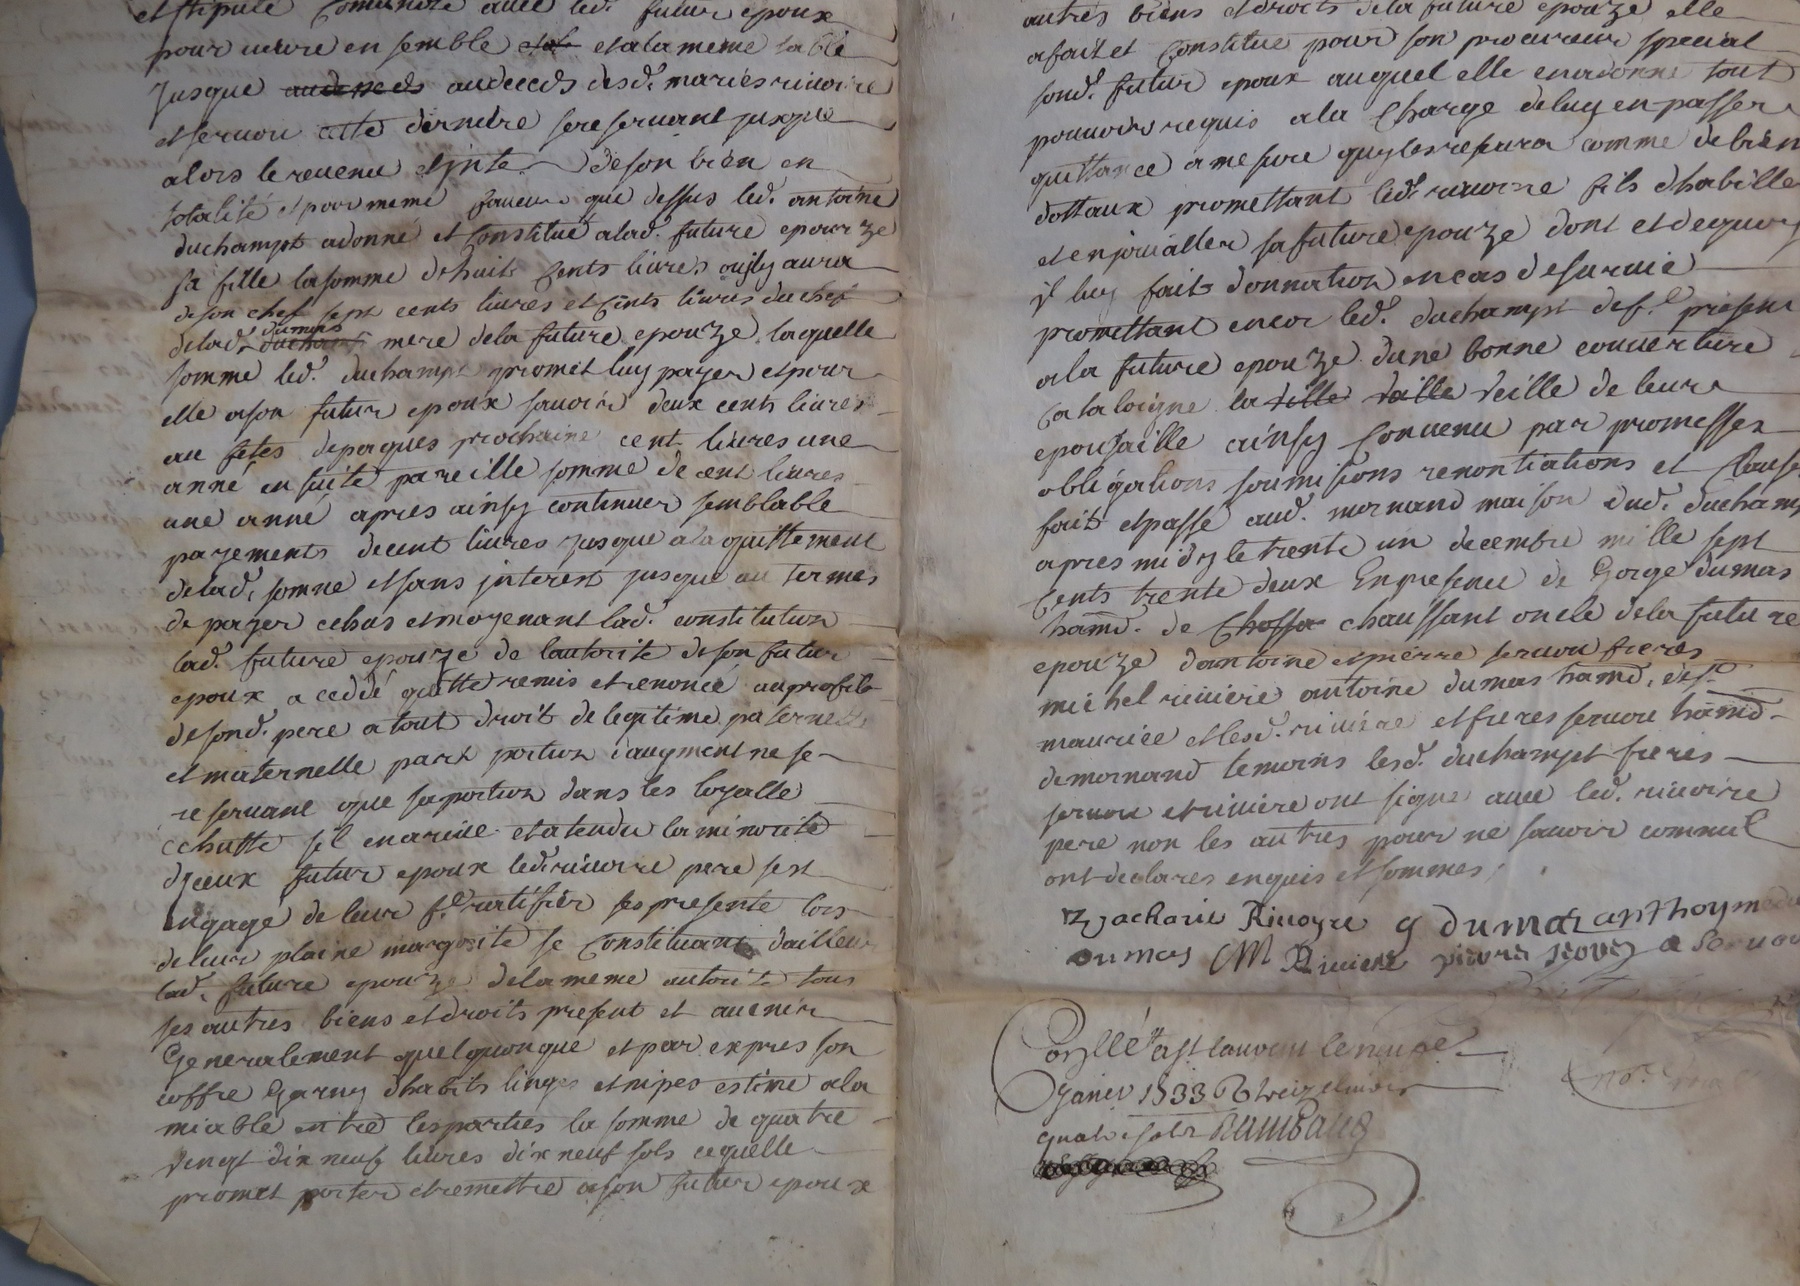 et stipulé Comunize avec led. futur epoux
pour vivre en semble et ala meme table
Jusque audeceds desd. mariés rivoire
et servou cette dernere sereservant jusque
alors le revenu et jnte. deson bien en
totalité et pour meme faveur que dessus led. antoine
duchampt adonné et Constitué alad. future epouze
sa fille lasomme dehuit Cents livres ouily aura
deson chef sept cents livres et Cents livres du chef
delad. dumas mere dela future epouze laquelle
somme led. duchampt promet luy payer et pour
elle ason futur epoux savoir deux cents livres
au fetes depaques prochaine cent livres une
anné en suite pareille somme de cent livres
une anné apres ainsy continuer semblable
payements decent livres jusque ala quittement
delad. somme et sans jnterest jusque au termes
de payer echus et moyenant lad. constitution
lad. future epouze de lautorité deson futur
epoux a ceddé quitte remis et renoncé auprofit
desond. pere atout droit de legitime paternelle
et maternelle part portion daugment ne se
reservant que saportion dans les loyalle
echutte sil en arive et atendu la minorité
djceux futur epoux led. rivoire pere sest
engagé de leur fe. ratifier les presente lors
deleur plaine margorité se Constituant dailleurs
lad. future epouze delameme autorité tous
ses autres biens et droits present et avenir
Generalement quelquonque et par expres son
coffre Garny dhabits linges et nipes estimé ala
miable entre lesparties la somme de quatre
vingt dix neuf livres dix neuf sols cequelle
promet porter et remettre ason futur epoux
autres biens et droits dela future epouze elle
afait et Constitué pour son procureur special
sond. futur epoux auquel elle en adonné tout
pouvoirs requis ala Charge deluy en passer
quittance a mesure quyl les resevra comme de bien
dottaux promettant led. rivoire fils dhabille
et enjouialler sa future epouze dont et dequoy
jl luy fait donnation encas desurvie
promettant encor led. duchampt de fe. present
ala future epouze dune bonne couverture
Catalogne la veille de leur
epousaille ainsy Convenu par promesses
obligations soumisions renontiations et Clauses
fait et passé aud. mornand maison dud. duchampt
apres midy le trente un decembre mille sept
Cents trente deux En presence de George dumas
hamd. de chaussant oncle dela future
epouze dantoine et pierre servou freres
michel riviere antoine dumas hamd. de st.
maurice et lesd. riviere et freres servou hamd.
demornand temoins lesd. duchampt freres
servou et riviere ont signé avec led. rivoire
pere non les autres pour ne savoir comme il
ont declarés enquis et sommes
Zacharie Rivoyre g dumas anthoyne
dumas M Riviere pierre servou a Servou
Conllé a st lauvent le neufe
Janier 1733 R treize livres
quatre sols Rumbaud